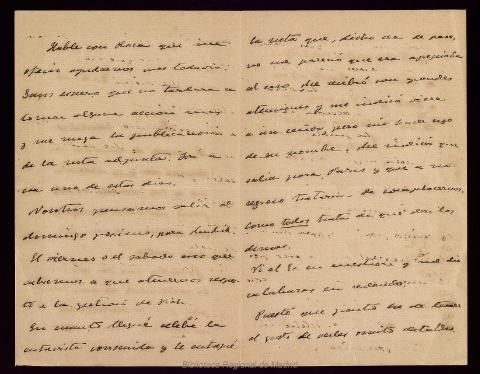 Hablé con Roca que me
ofreció ayudarnos más todavía.
Dans espero que no tardará en
tomar alguna acción más
y me ruega la publicación
de la nota adjunta.
una de estos días.
Nosotros pensamos salir el
domingo próximo, para Madrid.
El viernes o el sábado creo que
sabremos a que atenernos respec-
to a la gestión de
En cuanto llegué celebré la
entrevista convenida y le entregué
la nota que, dicho sea de paso,
no me pareció que era apropiada
al caso. Me recibió con grandes
atenciones y me indicó viera
a un señor, pero sin hacer uso
de su nombre. Me indicó que
salía para París y que a su
regreso trataría de complacernos,
como todos trata de que sea los
demás.
Vi al Sr. en cuestión y me dio
calabazas en redondo.
Puesto que pronto he de tener
el gusto de verlos omito detalles.
Biblioteca Regional de Madrid